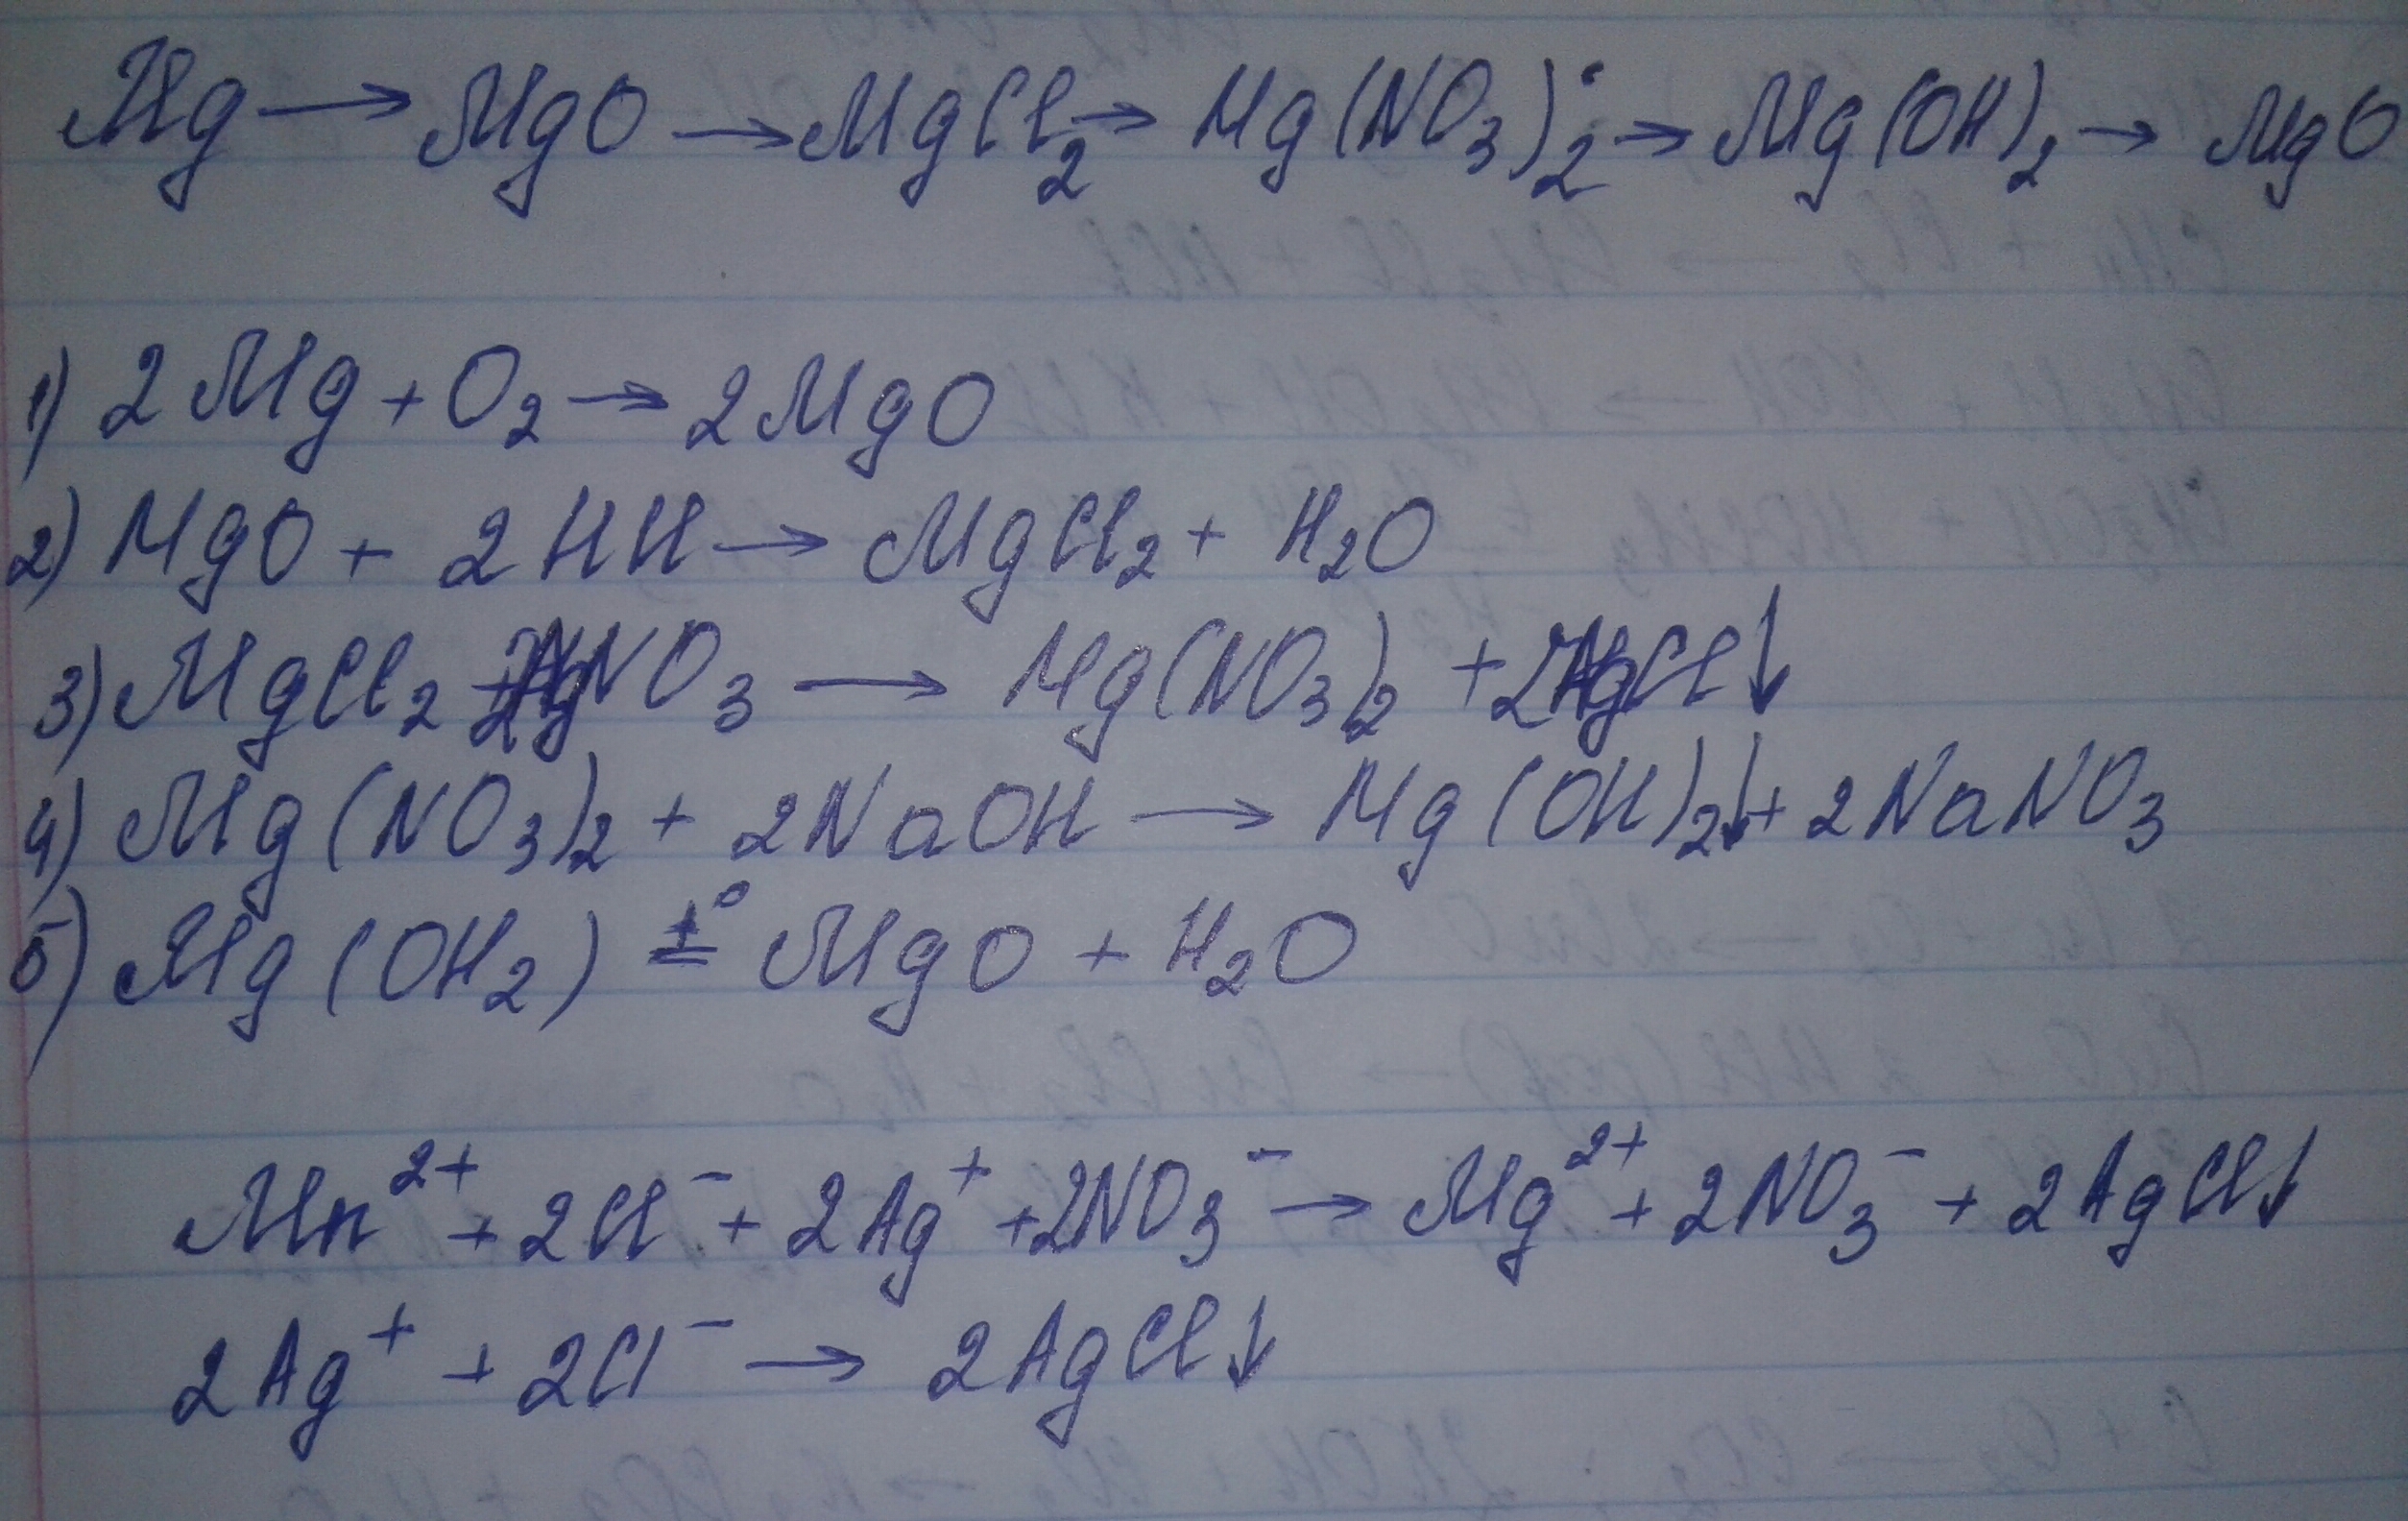 Mg → MgO → MgCl₂ → Mg(NO₃)₂ → Mg(OH)₂ → MgO
1) 2Mg + O₂ → 2MgO
2) MgO + 2HCl → MgCl₂ + H₂O
3) MgCl₂ + 2AgNO₃ → Mg(NO₃)₂ + 2AgCl↓
4) Mg(NO₃)₂ + 2NaOH → Mg(OH)₂↓ + 2NaNO₃
5) Mg(OH₂) t°= MgO + H₂O
Mn²⁺ + 2Cl⁻ + 2Ag⁺ + 2NO₃⁻ → Mg²⁺ + 2NO₃⁻ + 2AgCl↓
2Ag⁺ + 2Cl⁻ → 2AgCl↓